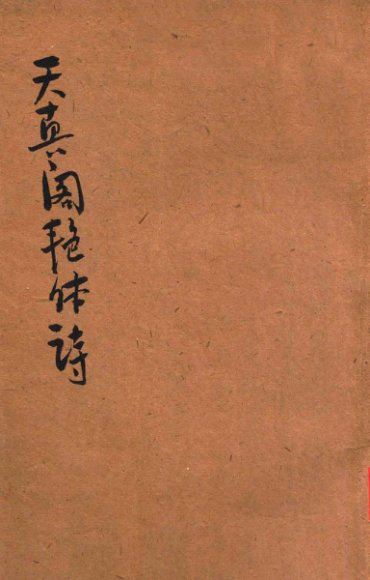 天真阁艳体诗